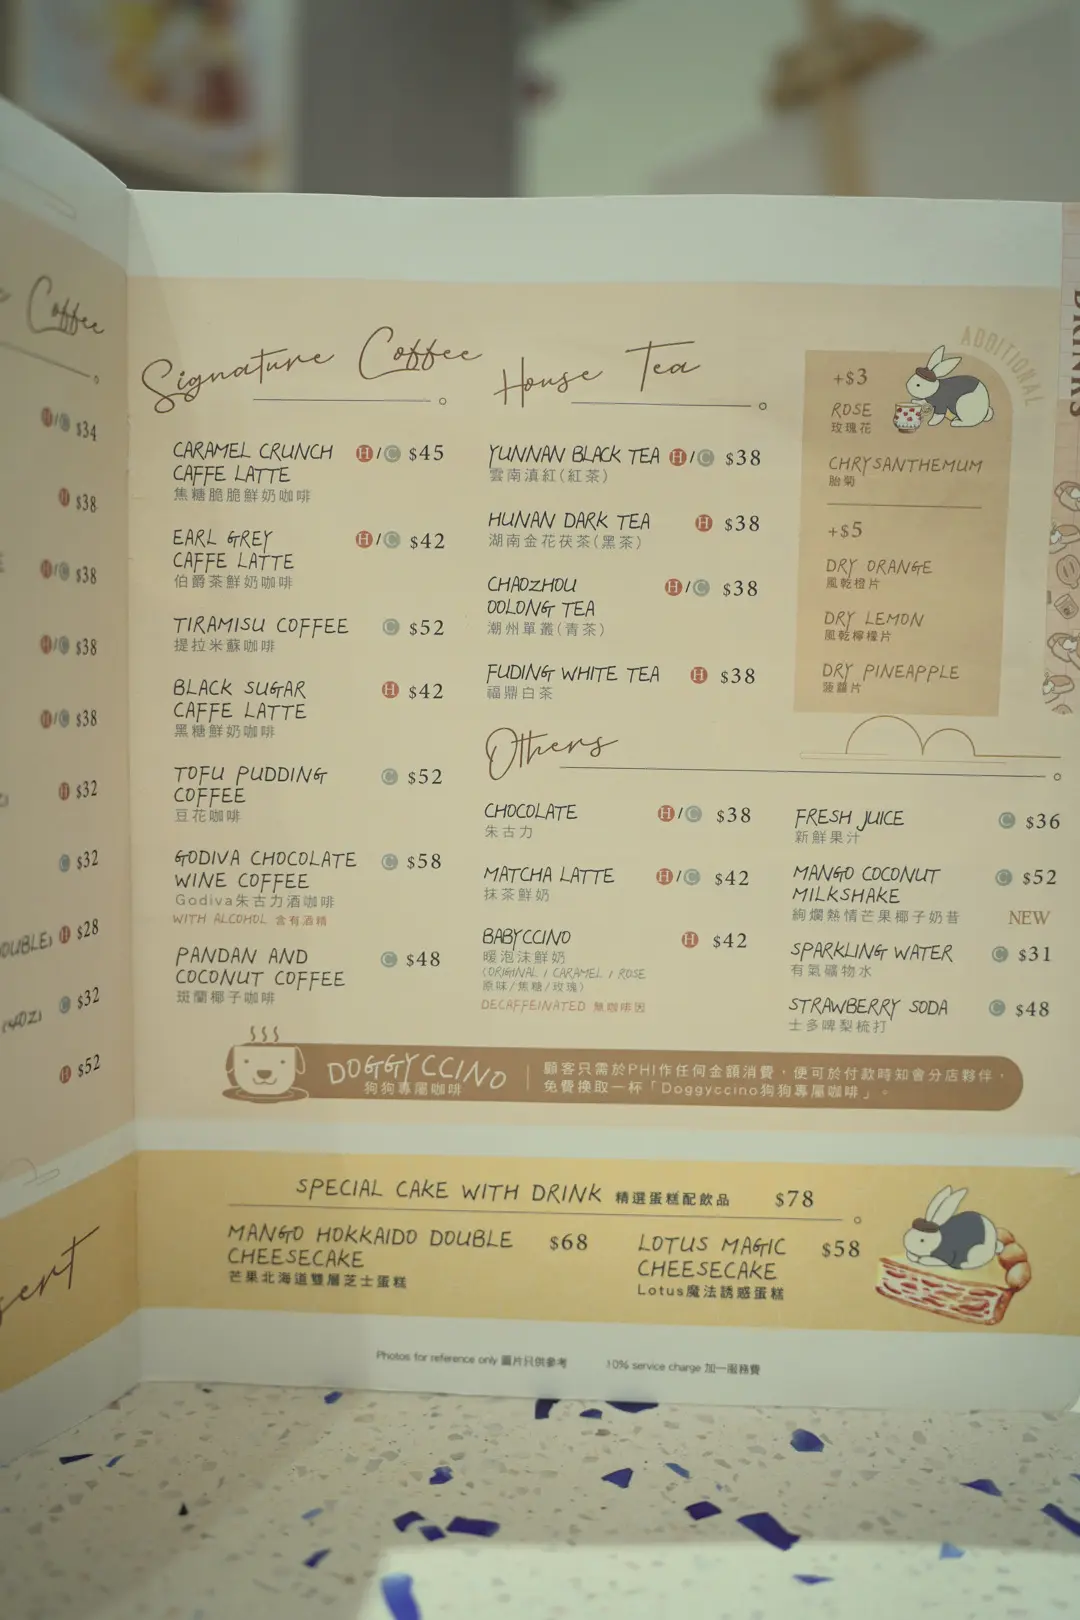 Coffee
H/C $34
H $38
H/C $38
H/C $38
H/C $38
H $32
C $32
DOUBLE) H $28
(4OZ) C $32
H $52
Signature Coffee
CARAMEL CRUNCH H/C $45
CAFFE LATTE
焦糖脆脆鮮奶咖啡
EARL GREY H/C $42
CAFFE LATTE
伯爵茶鮮奶咖啡
TIRAMISU COFFEE C $52
提拉米蘇咖啡
BLACK SUGAR H $42
CAFFE LATTE
黑糖鮮奶咖啡
TOFU PUDDING C $52
COFFEE
豆花咖啡
GODIVA CHOCOLATE C $58
WINE COFFEE
Godiva朱古力酒咖啡
WITH ALCOHOL 含有酒精
PANDAN AND C $48
COCONUT COFFEE
斑蘭椰子咖啡
House Tea
YUNNAN BLACK TEA H/C $38
雲南滇紅(紅茶)
HUNAN DARK TEA H $38
湖南金花茯茶(黑茶)
CHAOZHOU H/C $38
OOLONG TEA
潮州單叢(青茶)
FUDING WHITE TEA H $38
福鼎白茶
ADDITIONAL
+$3
ROSE
玫瑰花
CHRYSANTHEMUM
胎菊
+$5
DRY ORANGE
風乾橙片
DRY LEMON
風乾檸檬片
DRY PINEAPPLE
菠蘿片
DRINKS
Others
CHOCOLATE H/C $38
朱古力
MATCHA LATTE H/C $42
抹茶鮮奶
BABYCCINO H $42
暖泡沫鮮奶
(ORIGINAL / CARAMEL / ROSE
原味/焦糖/玫瑰)
DECAFFEINATED 無咖啡因
FRESH JUICE C $36
新鮮果汁
MANGO COCONUT C $52
MILKSHAKE
絢爛熱情芒果椰子奶昔 NEW
SPARKLING WATER C $31
有氣礦物水
STRAWBERRY SODA C $48
士多啤梨梳打
DOGGYCCINO
狗狗專屬咖啡
顧客只需於PHI作任何金額消費，便可於付款時知會分店夥伴，
免費換取一杯「Doggyccino狗狗專屬咖啡」。
sert
SPECIAL CAKE WITH DRINK 精選蛋糕配飲品 $78
MANGO HOKKAIDO DOUBLE $68
CHEESECAKE
芒果北海道雙層芝士蛋糕
LOTUS MAGIC $58
CHEESECAKE
Lotus魔法誘惑蛋糕
Photos for reference only 圖片只供參考 10% service charge 加一服務費